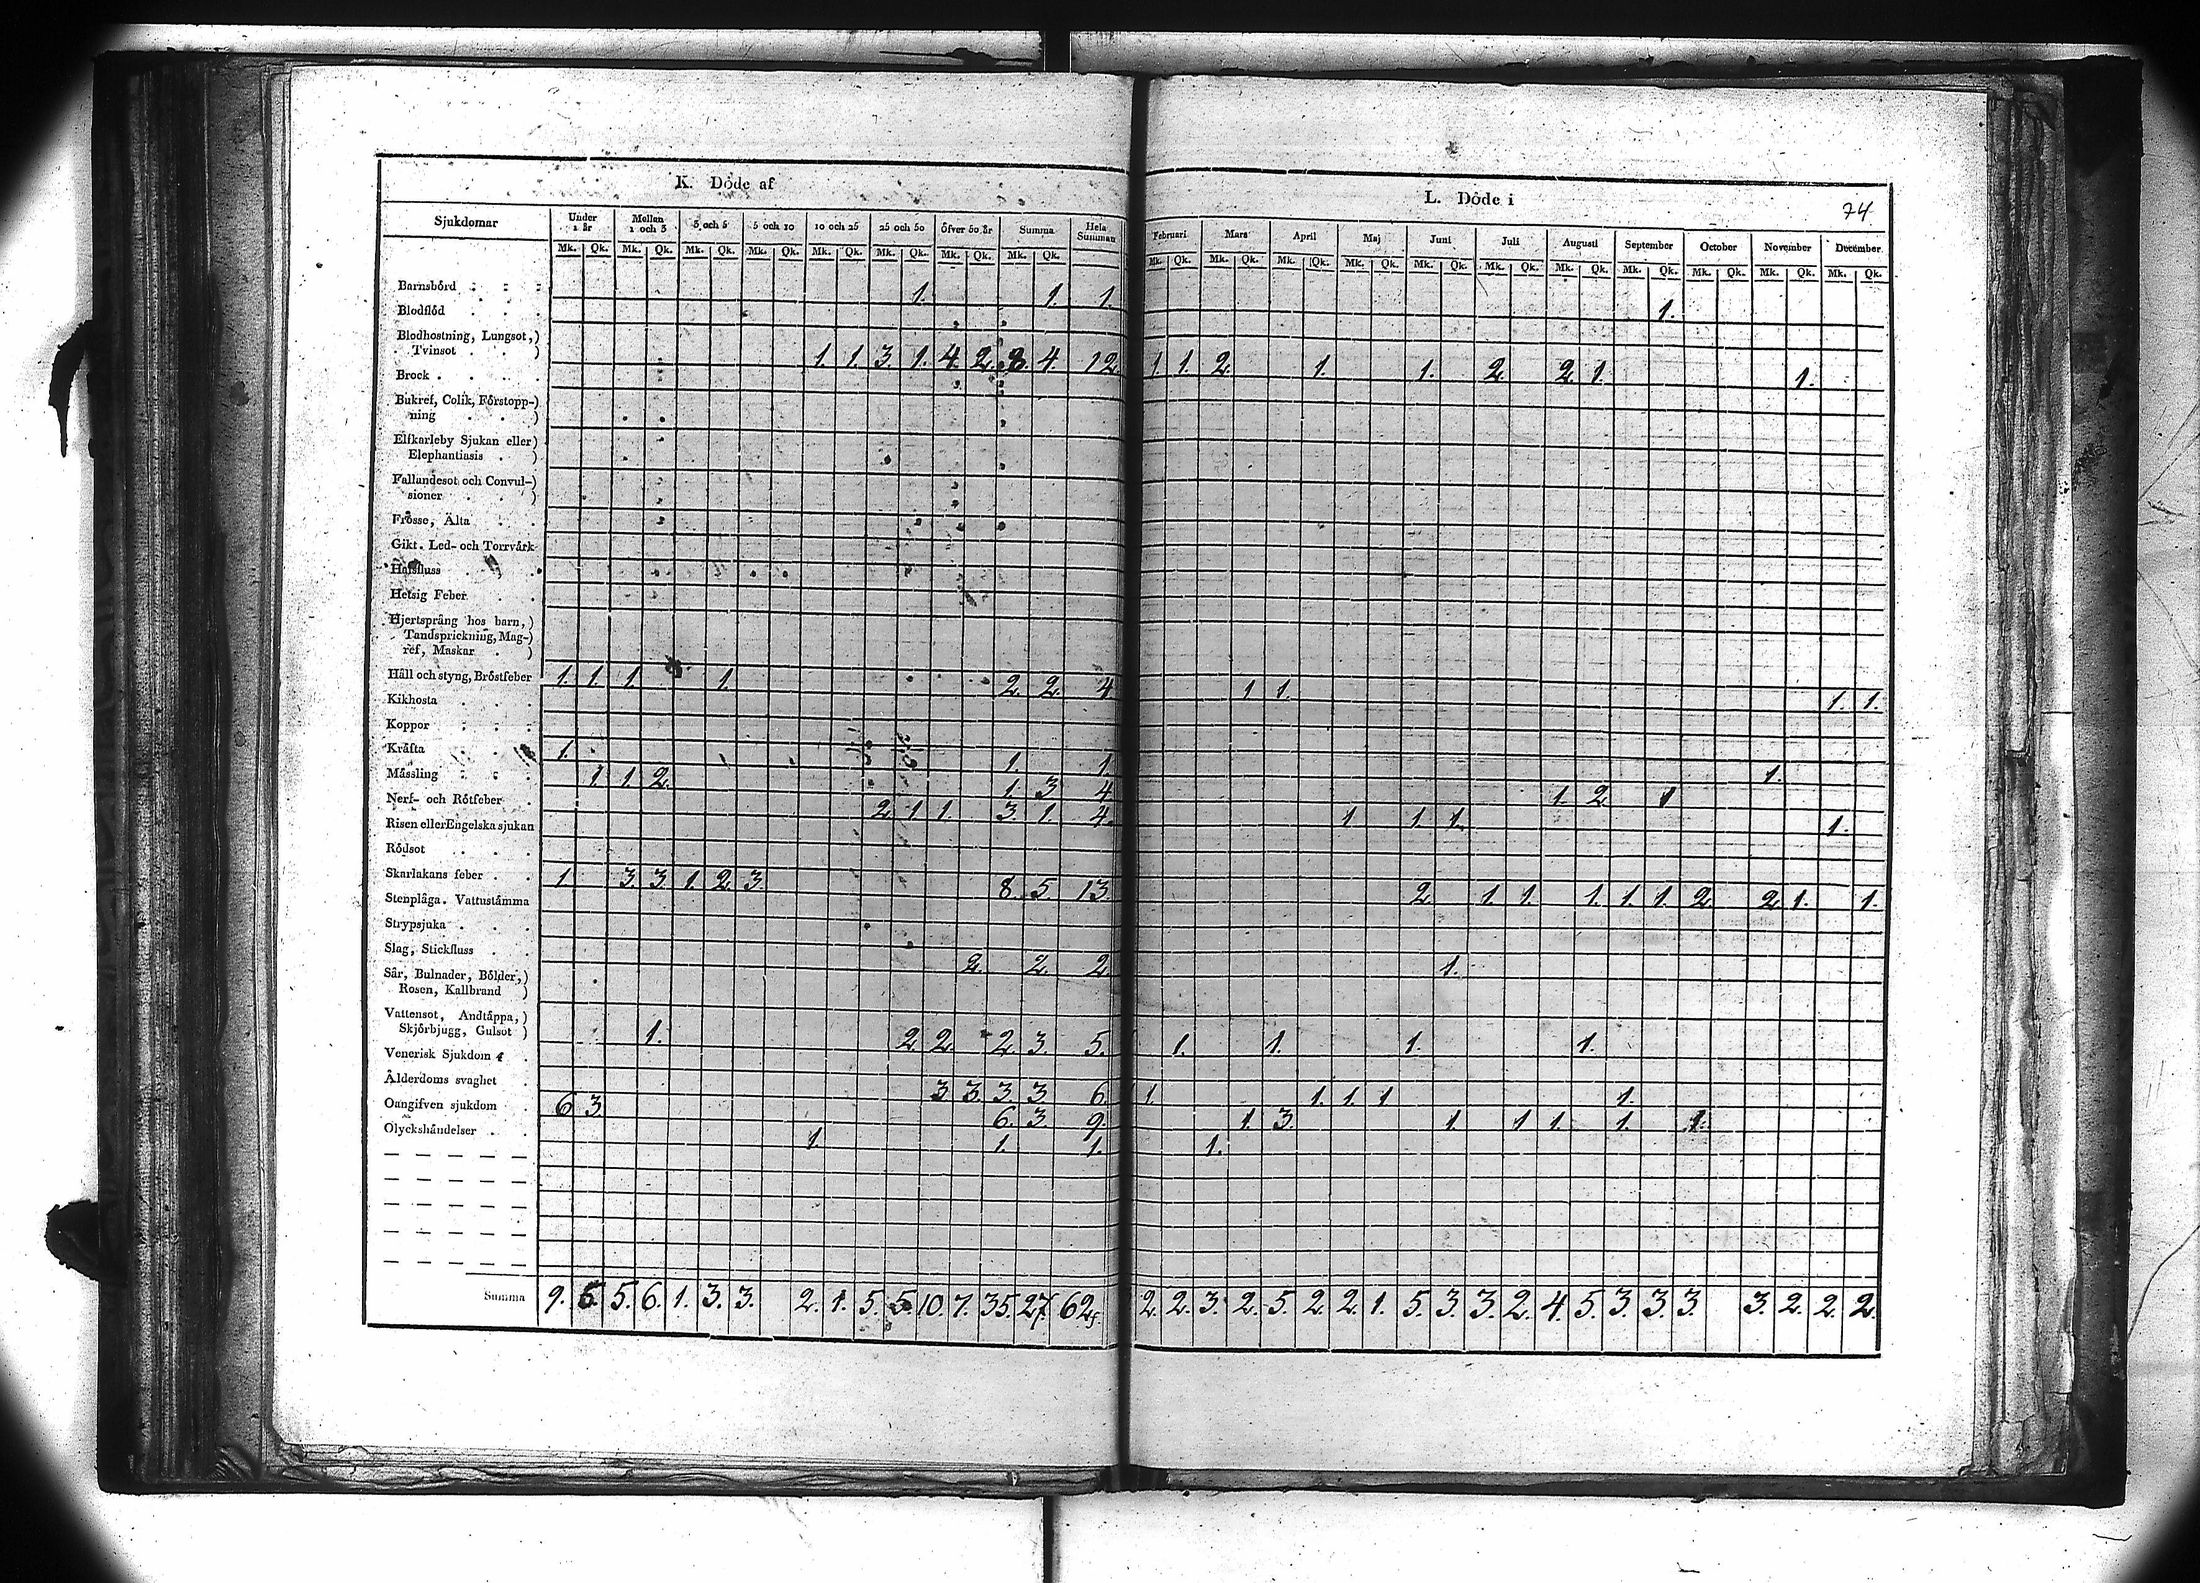 K. Döde af
L. Döde i
74
Sjukdomar Under 1 år Mellan 1 och 3 3 och 5 5 och 10 10 och 25 25 och 50 öfver 50 år Summa Hela Summan Februari Mars April Maj Juni Juli Augusti September October November December
Mk. Qk. Mk. Qk. Mk. Qk. Mk. Qk. Mk. Qk. Mk. Qk. Mk. Qk. Mk. Qk. Mk. Qk. Mk. Qk. Mk. Qk. Mk. Qk. Mk. Qk. Mk. Qk. Mk. Qk. Mk. Qk. Mk. Qk. Mk. Qk. Mk. Qk.
Barnsbörd 1. 1. 1. 1.
Blodflöd
Blodhostning, Lungsot,)
Tvinsot ) 1. 1. 3. 1. 4. 2. 8. 4. 12 1. 1. 2. 1. 1. 2. 2. 1. 1.
Brock
Bukref, Colik, Förstopp-)
ning )
Elfkarleby Sjukan eller)
Elephantiasis )
Fallandesot och Convul-)
sioner )
Frosse, Älta
Gikt. Led- och Torrvårk
Halsfluss
Hetsig Feber
Hjertsprång hos barn,)
Tandsprickning, Mag-)
ref, Maskar )
Håll och styng, Bröstfeber 1. 1. 1. 1. 2. 2. 4 1 1. 1. 1.
Kikhosta
Koppor
Kråfta 1. 1. 1. 1.
Måssling 1 1 2. 1. 3 4 1. 2 1
Nerf- och Rötfeber 2 1 1. 3. 1. 4. 1 1. 1. 1.
Risen eller Engelska sjukan
Rödsot
Skarlakans feber 1. 3. 3. 1. 2. 3 8. 5. 13. 2. 1. 1. 1. 1. 1. 2. 2. 1. 1.
Stenplåga. Vattuståmma
Strypsjuka
Slag, Stickfluss 2. 2. 2. 1.
Sår, Bulnader, Bölder,)
Rosen, Kallbrand )
Vattensot, Andtåppa,)
Skjörbjugg, Gulsot ) 1. 2. 2. 2. 3. 5. 1. 1. 1. 1.
Venerisk Sjukdom
Ålderdoms svaghet 3 3. 3. 3 6. 1. 1. 1. 1 1.
Oangifven sjukdom 6 3 6. 3. 9. 1. 3. 1. 1 1. 1. 1.
Olyckshåndelser 1. 1. 1. 1.
Summa 9. 5. 5. 6. 1. 3. 3. 2. 1. 5. 5. 10. 7. 35. 27. 62. 2. 2. 3. 2. 5. 2. 2. 1. 5. 3. 3. 2. 4. 5. 3. 3. 3. 3. 2. 2. 2.